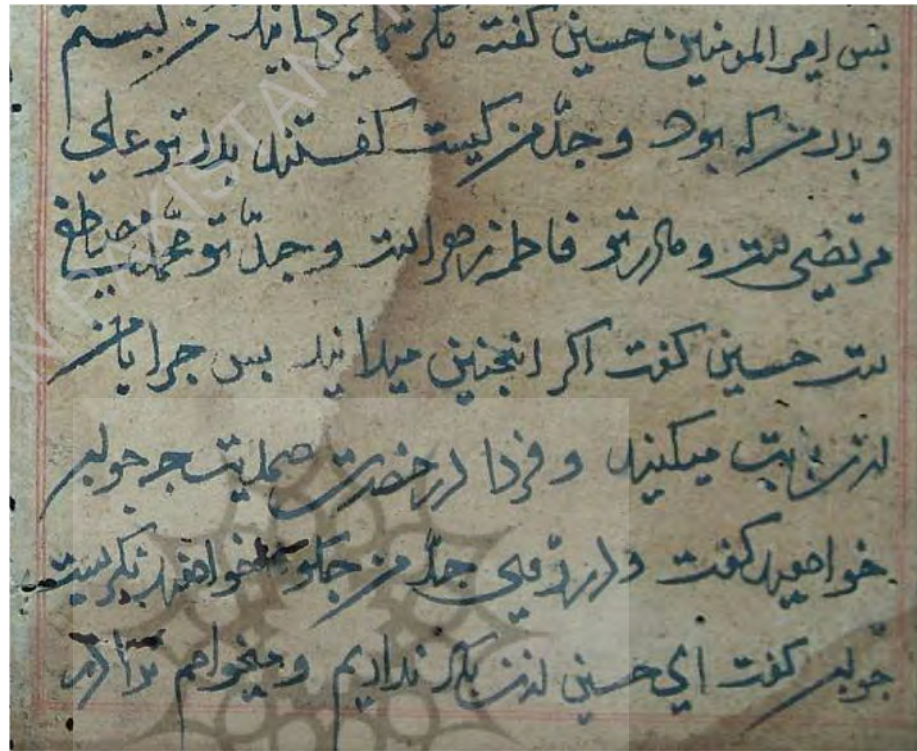 بس امیر المومنین حسین کفته مکر شما نمیدانید من کیستم
و بدر من که بود و جدّ من کیست کفتند بدر تو علی
مرتضی ست و مادر تو فاطمه زهرا است و جدّ تو محمّد مصطفی
ست حسین کفت اکر اینجنین میدانید بس جرا با من
میکنید و فردا در حضرت صمدیت جه جواب
خواهید کفت و در روی جدّ من جکونه خواهید نکریست
جواب کفت ای حسین ازین باک نداریم و میخواهم ترا